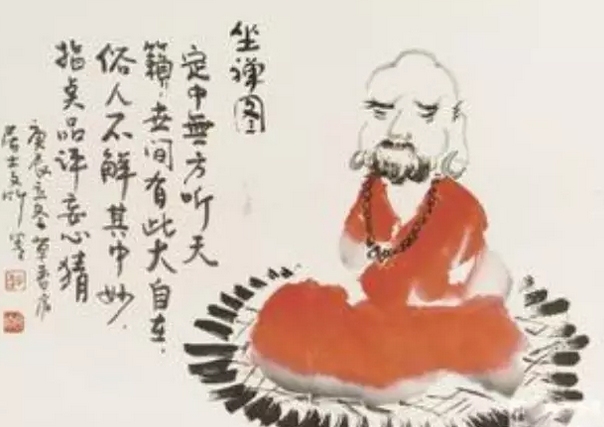 坐禅图
定中無方听天
籟,世间有此大自在,
俗人不解其中妙,
指奌品评妄心猜
庚辰立冬草
居士